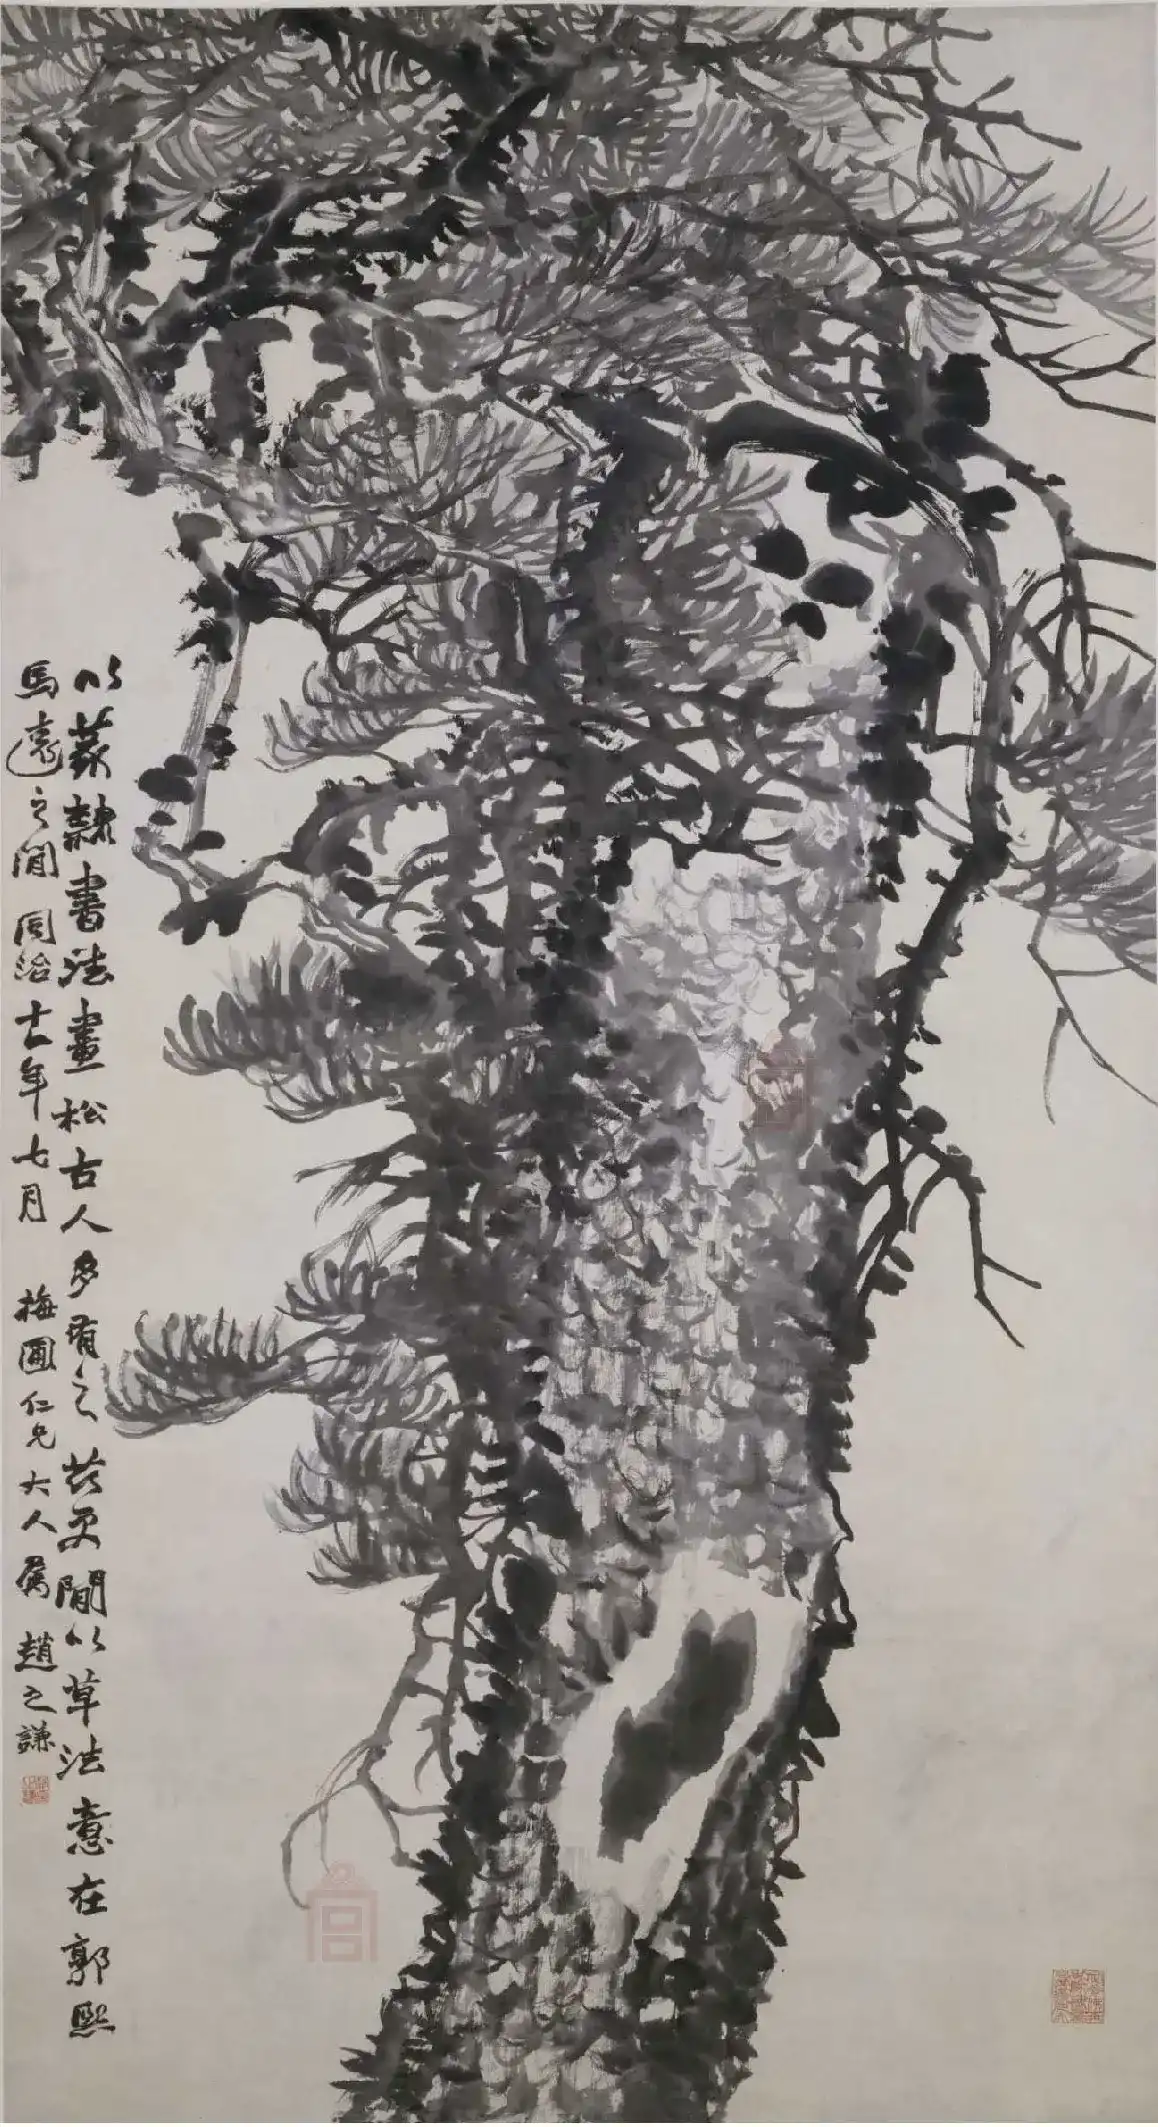 以篆隸書法畫松古人多有之兹更間以草法意在郭熙
馬遠之間同治十一年七月 梅圃仁兄大人屬 趙之謙